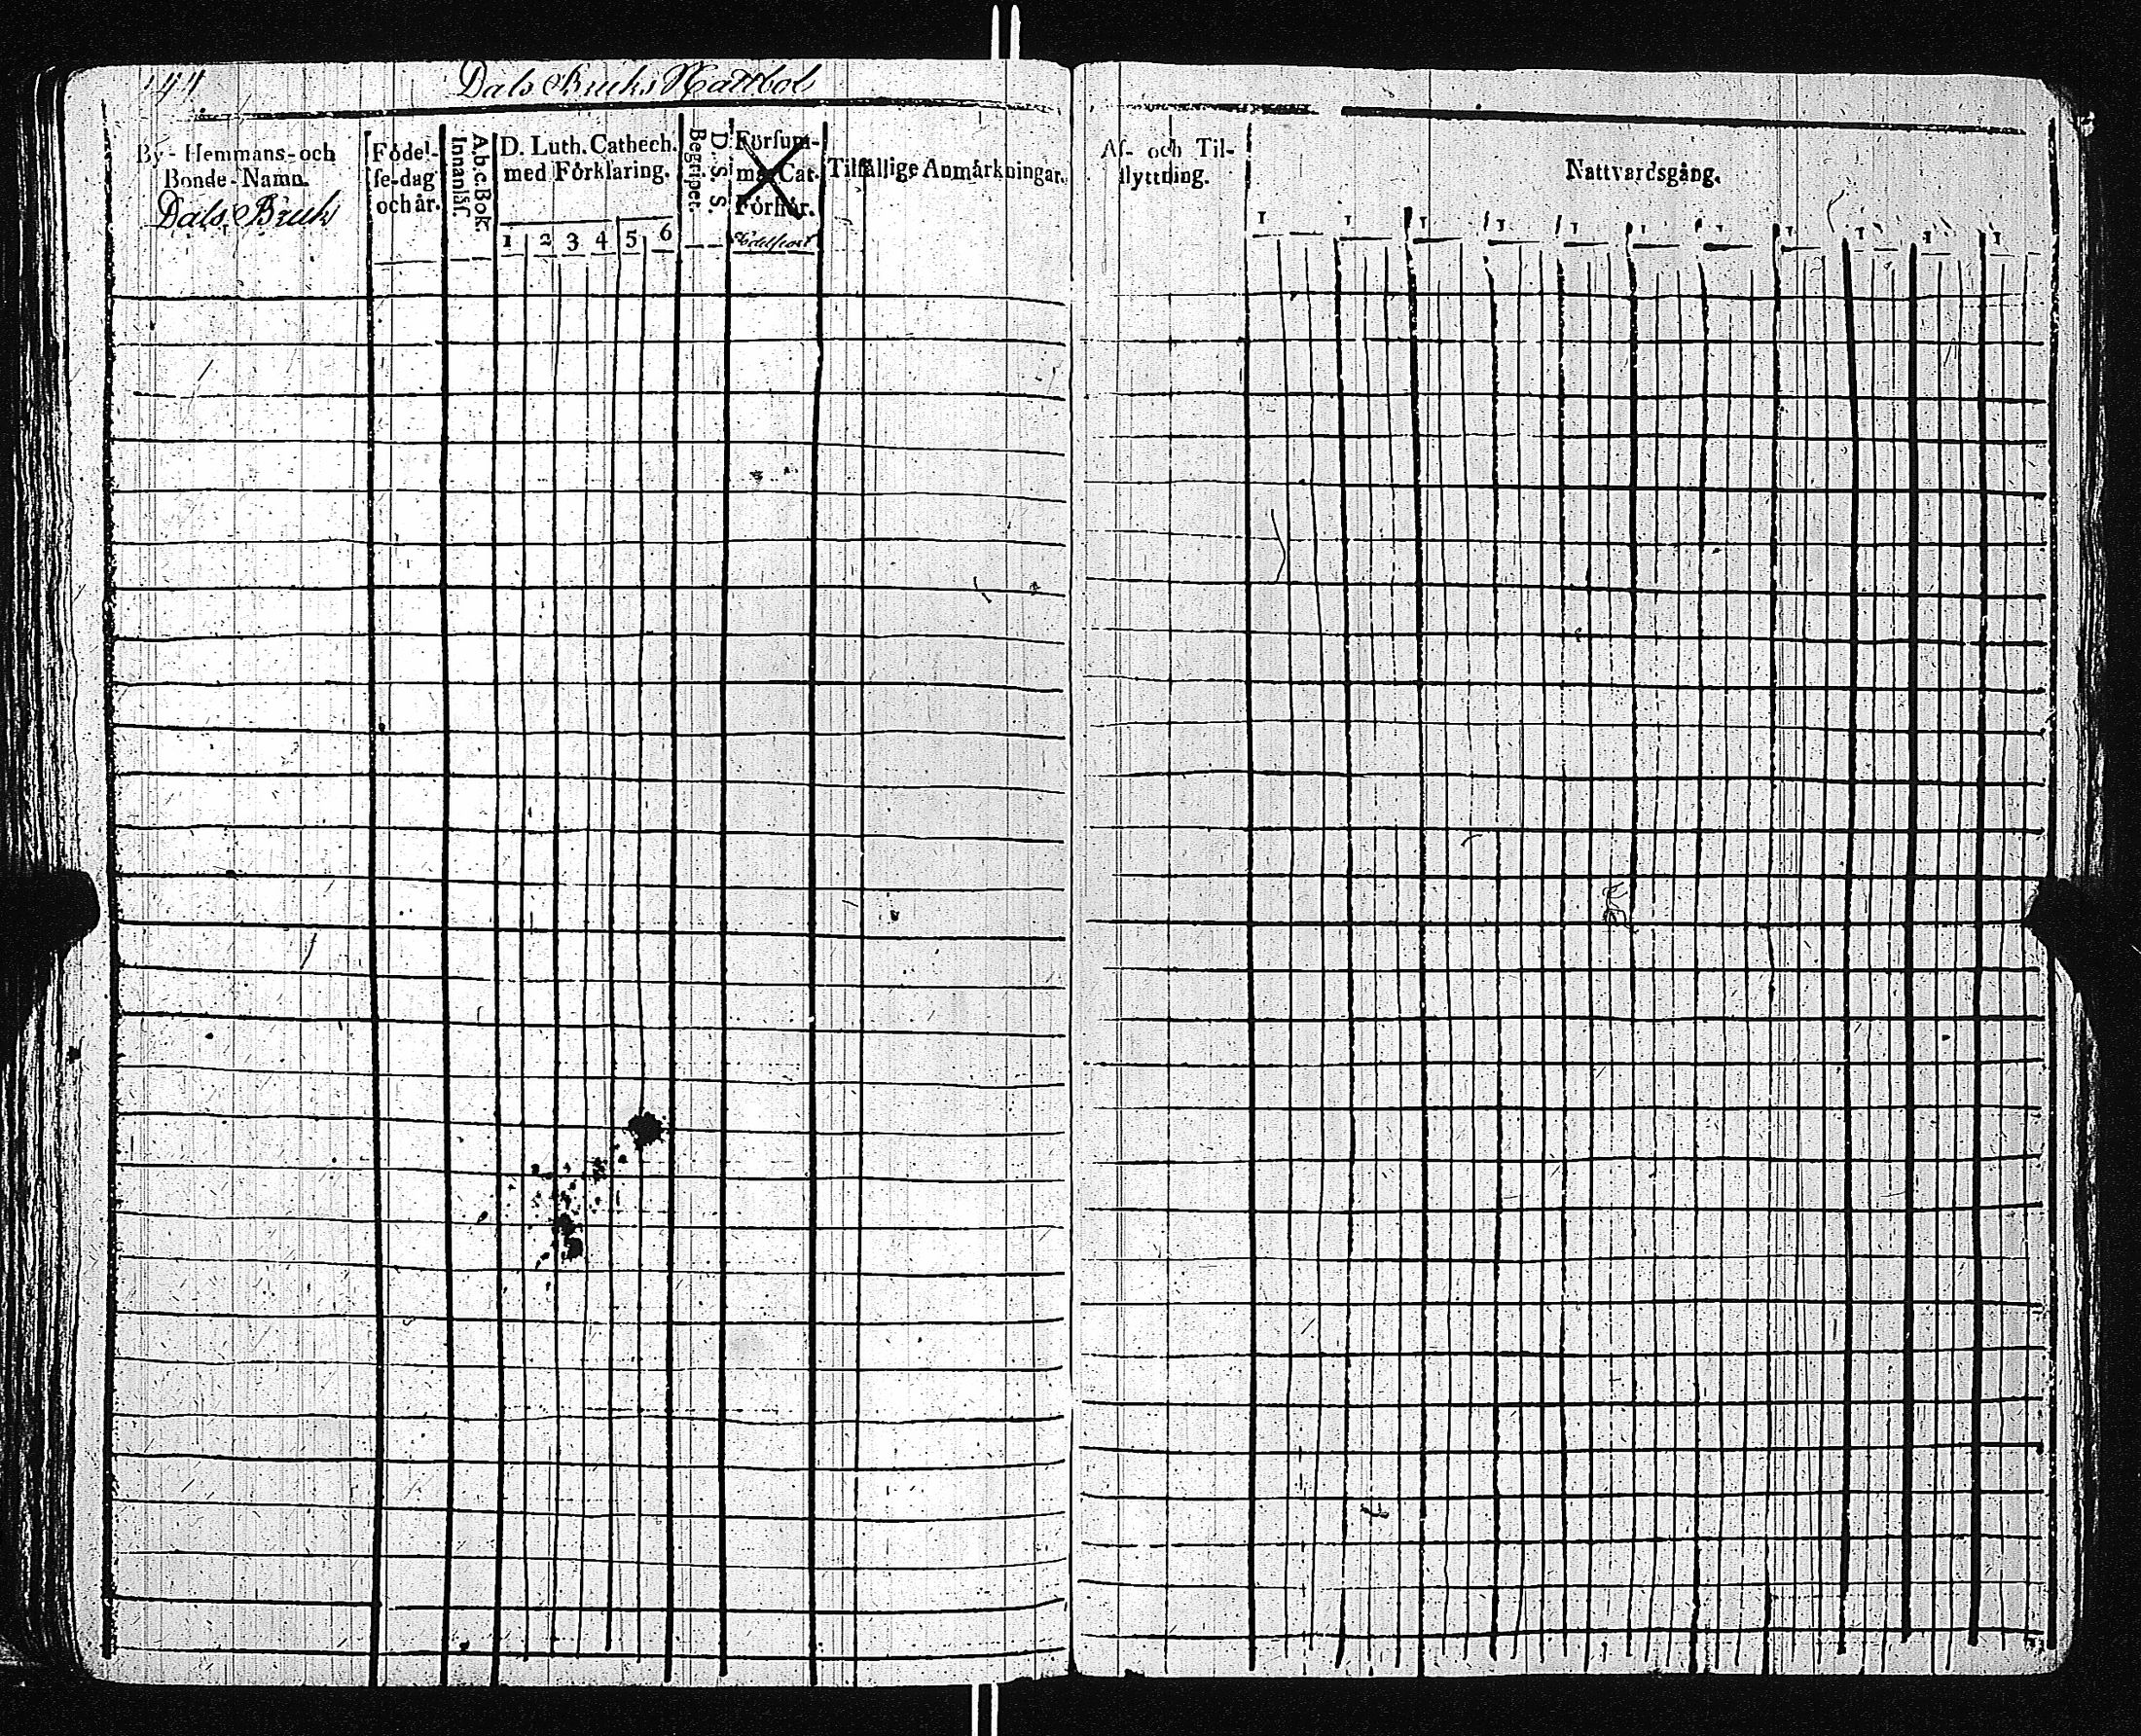 144
Dals Bruks Nattbol
By- Hemmans- och
Bonde-Namn.
Dals Bruk
Födel-
se-dag
och år.
A.b.c. Bok
Innanläs.
D. Luth. Cathech.
med Förklaring.
1 2 3 4 5 6
D. S. S.
Begriper.
Försum-
mat Cat.
Förhör.
Tilfällige Anmärkningar.
Af- och Til-
flyttning.
Nattvardsgång.
1 1 1 1 1 1 1 1 1 1 1